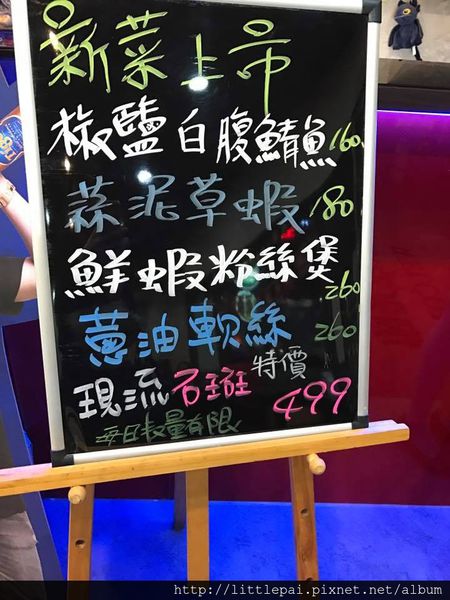 新菜上市
椒鹽白腹鯖魚 160
蒜泥草蝦 180
鮮蝦粉絲煲 260
蔥油軟絲 260
現流石斑 特價 499
每日數量有限
http://littlepai.pixnet.net/album